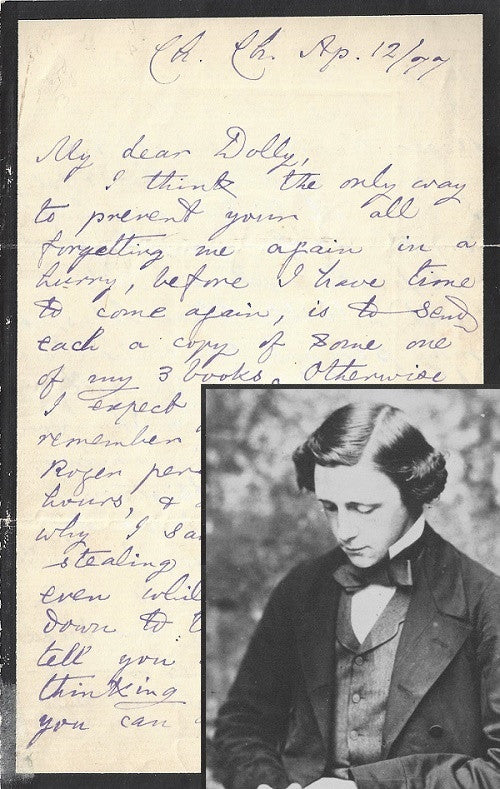 Ch. Ch. Ap. 12/77
My dear Dolly,
I think the only way
to prevent your all
forgetting me again in a
hurry, before I have time
to come again, is to send
each a copy of some one
of my 3 books. Otherwise
I expect
remember
Roger per
hours, &
why I sa
stealing
even whil
down to t
tell you
thinking
you can